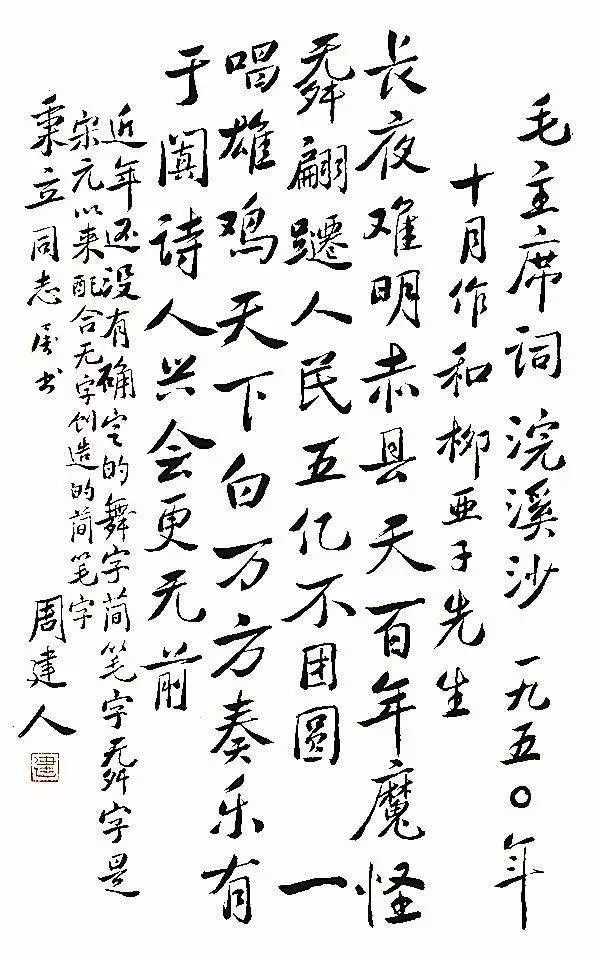 毛主席词浣溪沙 一九五〇年
十月作和柳亚子先生
长夜难明赤县天百年魔怪
⿱无舛翩躚人民五亿不团圆一
唱雄鸡天下白万方奏乐有
于阗诗人兴会更无前
近年还没有确定的舞字简笔字⿱无舛字是
宋元以来配合无字创造的简笔字
秉立同志属书 周建人